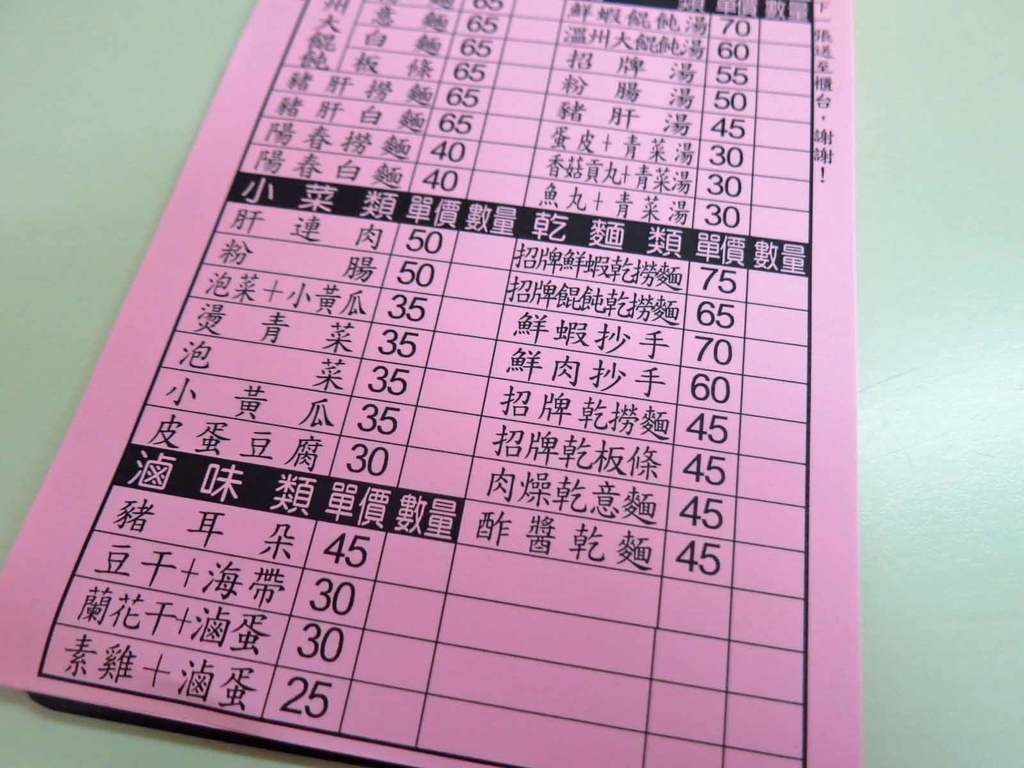 65
意麵 65
大白麵 65
餛飩板條 65
豬肝撈麵 65
豬肝白麵 65
陽春撈麵 40
陽春白麵 40
小菜類 單價 數量
肝連肉 50
粉腸 50
泡菜+小黃瓜 35
燙青菜 35
泡菜 35
小黃瓜 35
皮蛋豆腐 30
滷味類 單價 數量
豬耳朵 45
豆干+海帶 30
蘭花干+滷蛋 30
素雞+滷蛋 25
類 單價 數量
鮮蝦餛飩湯 70
溫州大餛飩湯 60
招牌湯 55
粉腸湯 50
豬肝湯 45
蛋皮+青菜湯 30
香菇貢丸+青菜湯 30
魚丸+青菜湯 30
乾麵類 單價 數量
招牌鮮蝦乾撈麵 75
招牌餛飩乾撈麵 65
鮮蝦抄手 70
鮮肉抄手 60
招牌乾撈麵 45
招牌乾板條 45
肉燥乾意麵 45
酢醬乾麵 45
下一張送至櫃台，謝謝！